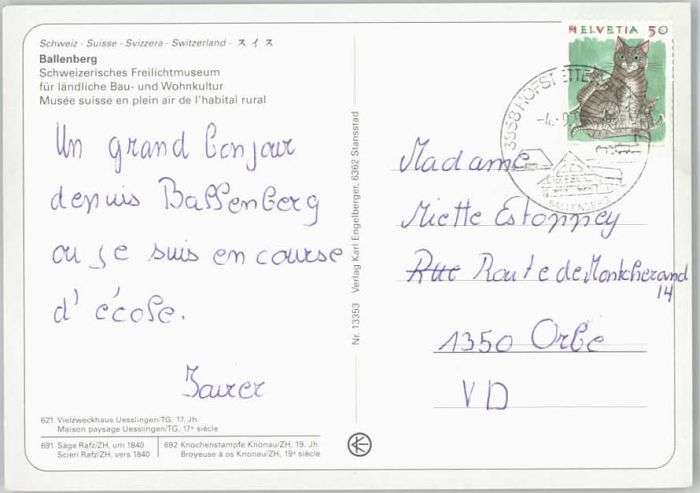 Schweiz - Suisse - Svizzera - Switzerland - スイス
Ballenberg
Schweizerisches Freilichtmuseum
für ländliche Bau- und Wohnkultur
Musée suisse en plein air de l'habital rural
Un grand bonjour
depuis Ballenberg
ou je suis en course
d'école.
621 Vielzweckhaus Uesslingen/TG, 17. Jh.
Maison paysage Uesslingen/TG, 17e siècle
691 Säge Rafz/ZH, um 1840
Scieri Rafz/ZH, vers 1840
692 Knochenstampfe Knonau/ZH, 19. Jh.
Broyeuse à os Knonau/ZH, 19e siècle
Nr. 13353 Verlag Karl Engelberger, 6362 Stansstad
HELVETIA 50
3858 HOFSTETTEN
BALLENBERG
Madame
Miette Estoppey
Rue Route de Montcherand
14
1350 Orbe
VD